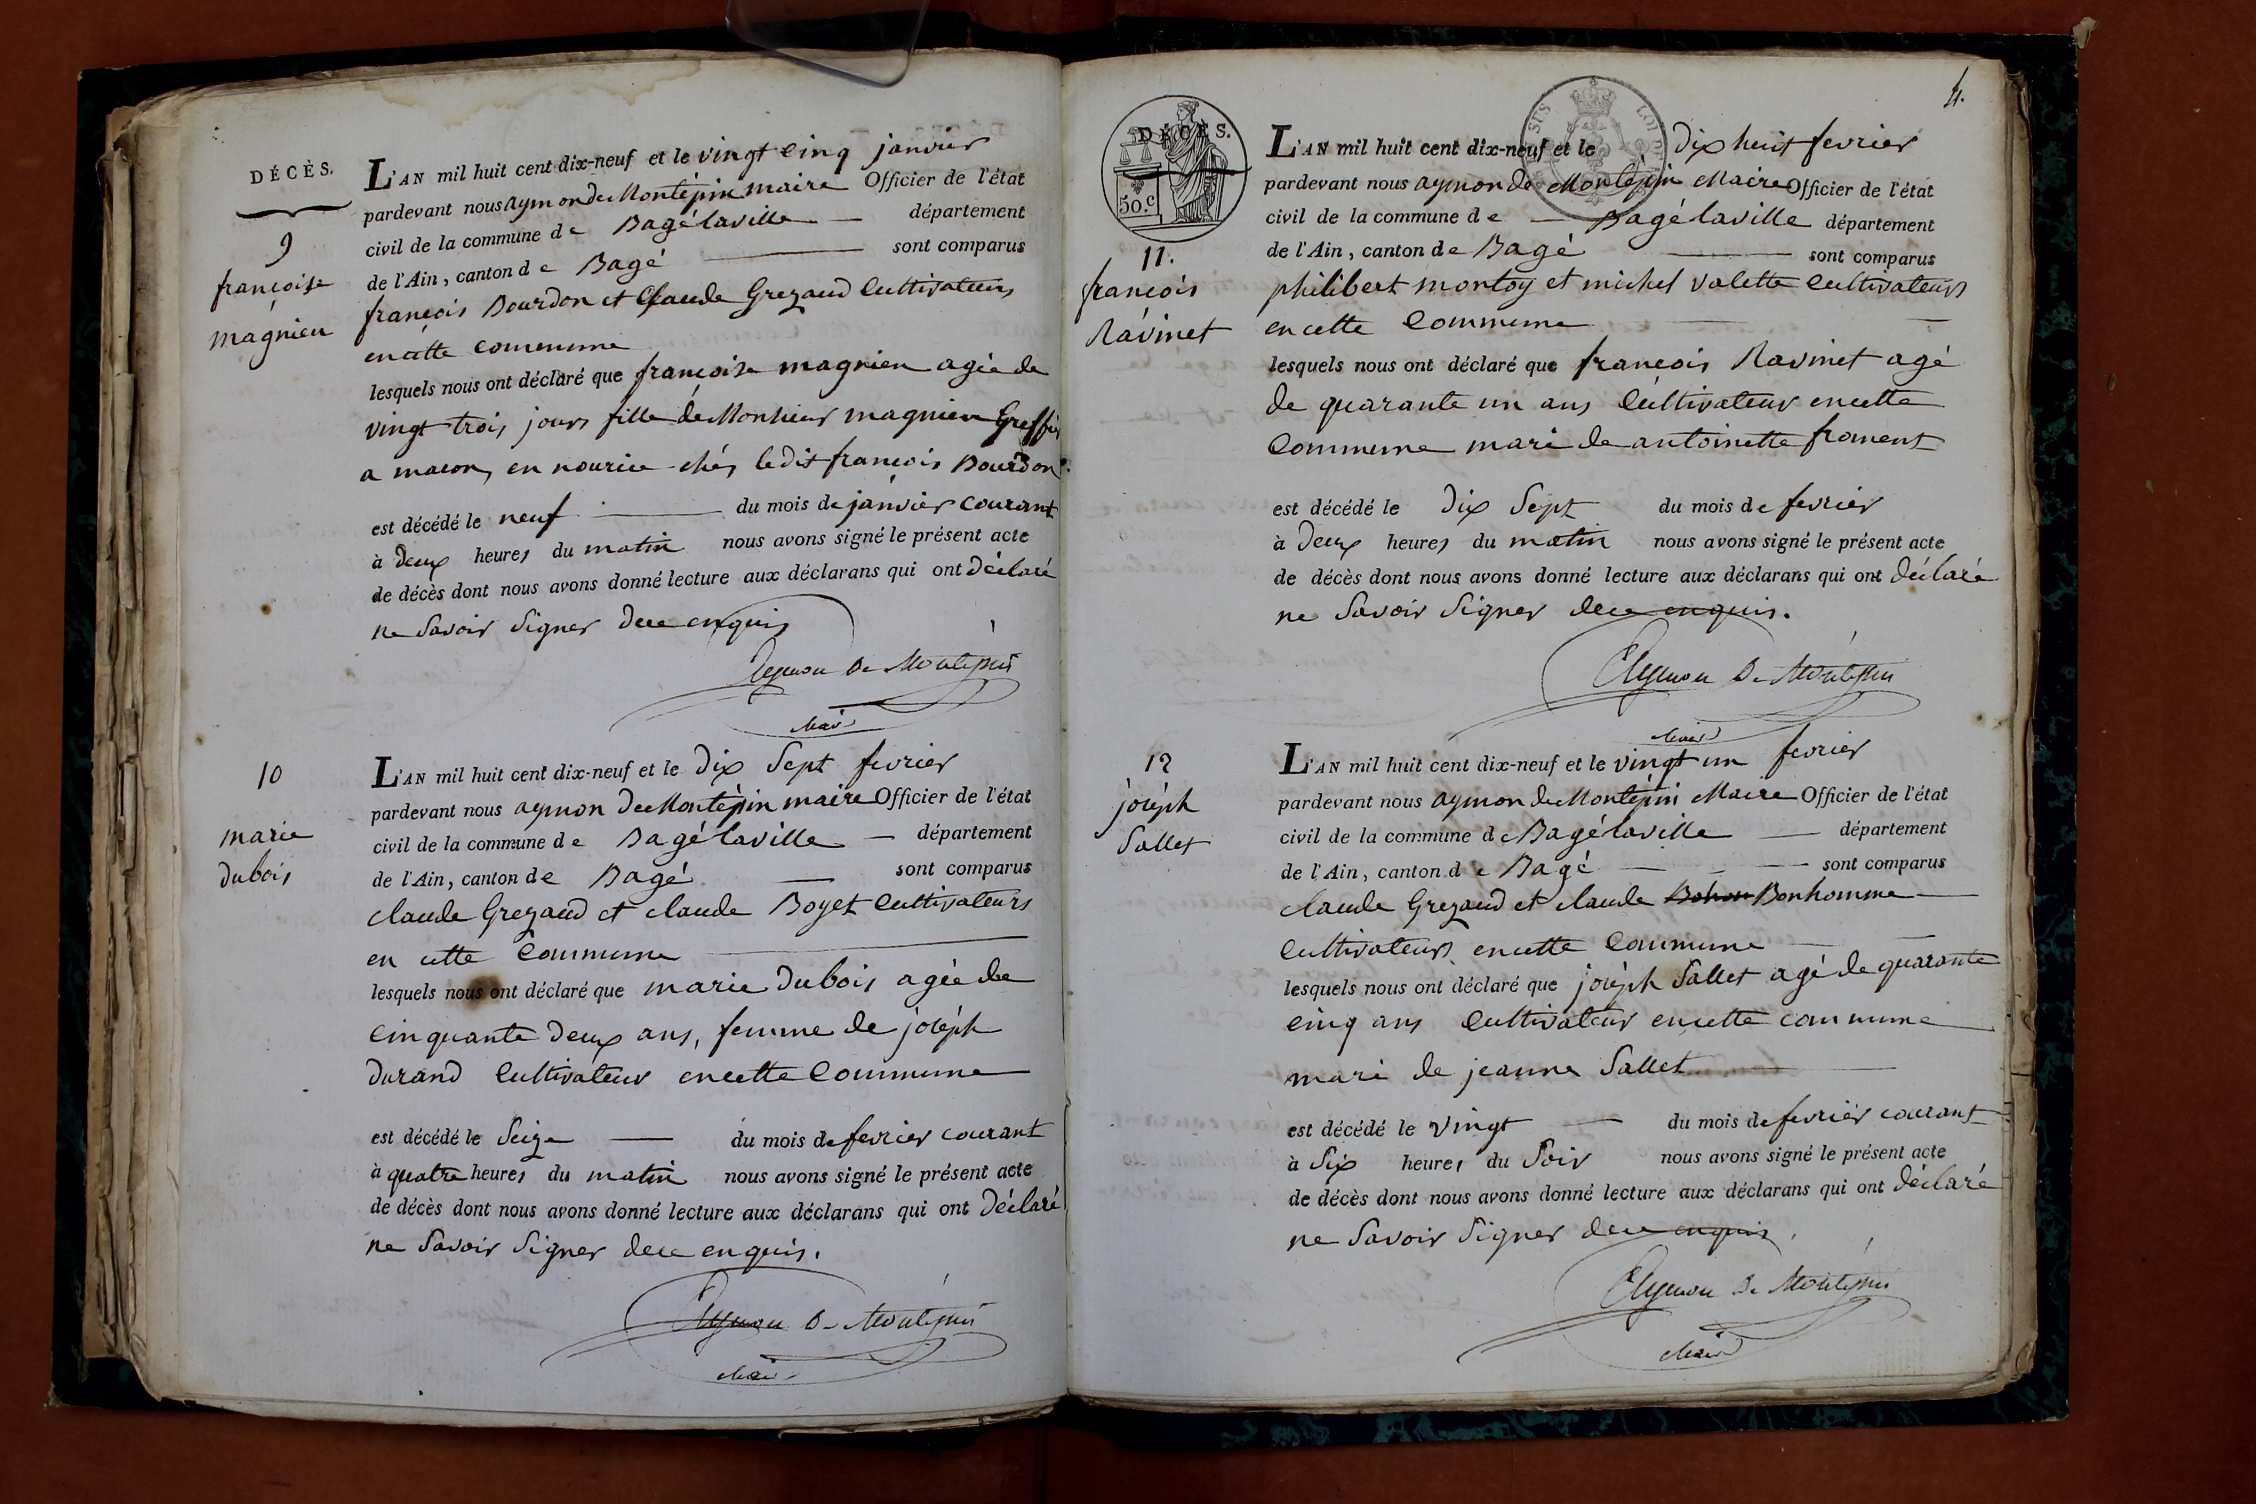 DÉCÈS.
9
françoise
magnien
L'AN mil huit cent dix-neuf et le vingt cinq janvier
pardevant nous aymon de Montépin maire Officier de l'état
civil de la commune de Bagé laville — département
de l'Ain, canton de Bagé — sont comparus
françois Bourdon et Claude Grezaud Cultivateurs
en cette commune
lesquels nous ont déclaré que françoise magnien agée de
vingt trois jours fille de Monsieur magnien Greffier
a macon, en nourice chés ledit françois Bourdon
est décédé le neuf — du mois de janvier courant
à deux heures du matin nous avons signé le présent acte
de décès dont nous avons donné lecture aux déclarans qui ont déclaré
ne Savoir Signer de ce enquis
Aymon De Montépin
Maire
10
marie
dubois
L'AN mil huit cent dix-neuf et le dix Sept fevrier
pardevant nous aymon de Montépin maire Officier de l'état
civil de la commune de Bagé laville — département
de l'Ain, canton de Bagé — sont comparus
claude Grezaud et claude Boyet Cultivateurs
en cette Commune
lesquels nous ont déclaré que marie dubois agée de
Cinquante deux ans, femme de joséph
durand Cultivateur en cette Commune
est décédé le Seize — du mois de fevrier courant
à quatre heures du matin nous avons signé le présent acte
de décès dont nous avons donné lecture aux déclarans qui ont déclaré
ne Savoir Signer de ce enquis.
Aymon De Montépin
Maire
4.
DÉCÈS.
50.c
11.
françois
Ravinet
L'AN mil huit cent dix-neuf et le dix huit fevrier
pardevant nous aymon de Montépin Maire Officier de l'état
civil de la commune de — Bagé laville département
de l'Ain, canton de Bagé — sont comparus
philibert montoy et michel valette Cultivateurs
en cette Commune — —
lesquels nous ont déclaré que françois Ravinet agé
de quarante un ans Cultivateur en cette
Commune mari de antoinette froment
est décédé le dix Sept du mois de fevrier
à deux heures du matin nous avons signé le présent acte
de décès dont nous avons donné lecture aux déclarans qui ont déclaré
ne Savoir Signer de ce enquis.
Aymon De Montépin
Maire
12
joséph
Sallet
L'AN mil huit cent dix-neuf et le vingt un fevrier
pardevant nous aymon de Montépin Maire Officier de l'état
civil de la commune de Bagé laville — département
de l'Ain, canton de Bagé — sont comparus
claude Grezaud et claude Bonhomme —
Cultivateurs en cette Commune —
lesquels nous ont déclaré que joséph Sallet agé de quarante
cinq ans Cultivateur en cette commune
mari de jeanne Sallet
est décédé le vingt — du mois de fevrier courant
à Six heures du Soir nous avons signé le présent acte
de décès dont nous avons donné lecture aux déclarans qui ont déclaré
ne Savoir Signer de ce enquis
Aymon De Montépin
Maire